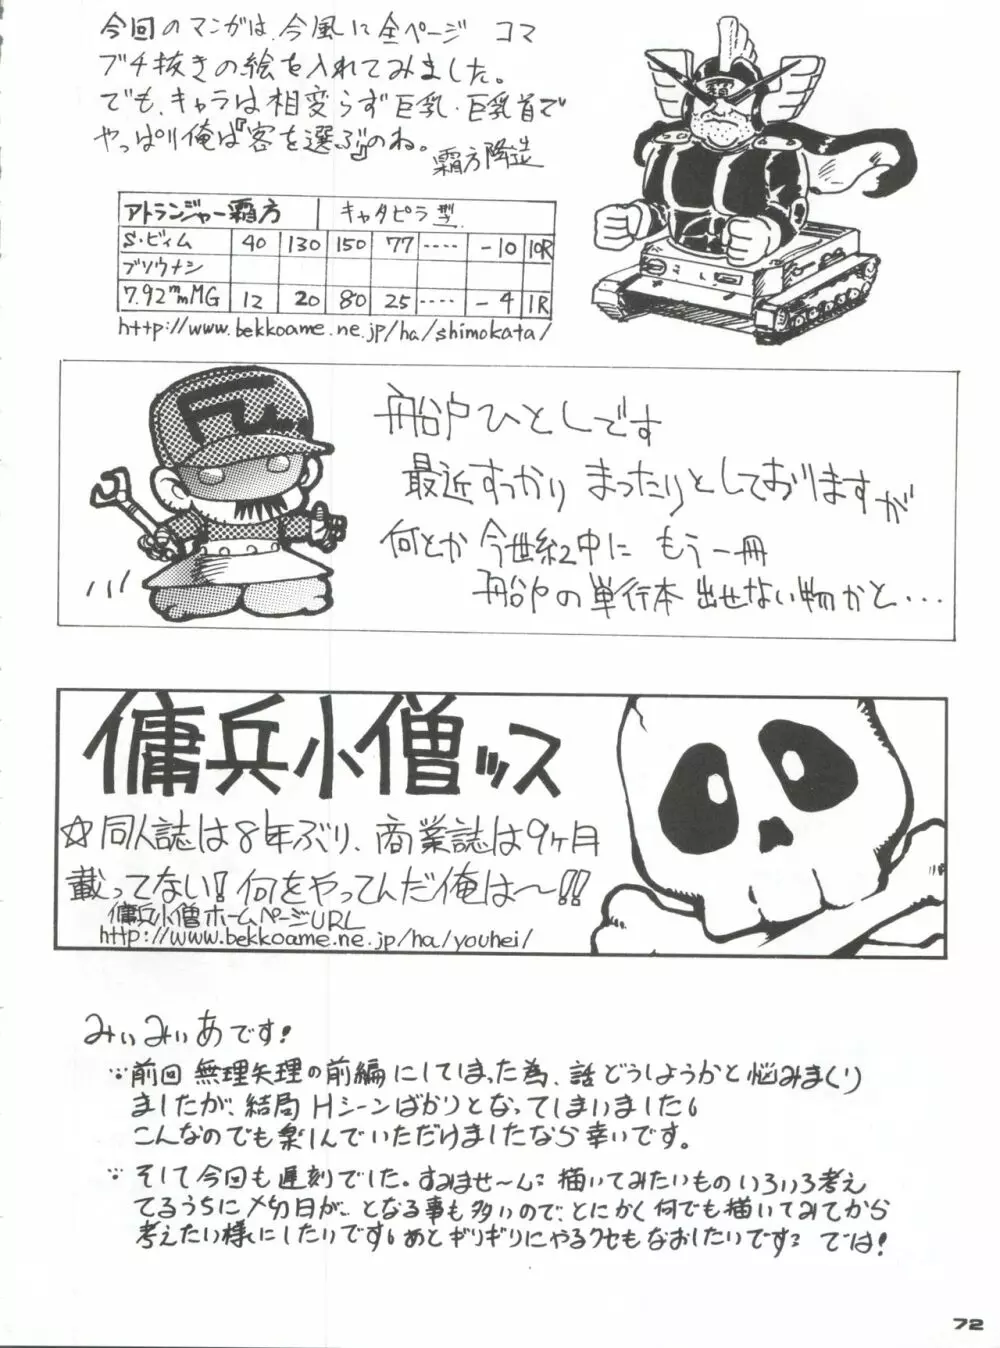 今回のマンガは、今風に全ページ コマ
ブチ抜きの絵を入れてみました。
でも、キャラは相変らず巨乳・巨乳首で
やっぱり俺は『客を選ぶ』のね。
霜方降造
アトランジャー霜方 キャタピラ型
S・ビィム 40 130 150 77 ‥‥ -10 10R
ブソウナシ
7.92mmMG 12 20 80 25 ‥‥ -4 1R
http://www.bekkoame.ne.jp/ha/shimokata/
船戸ひとしです
最近すっかり まったりとしておりますが
何とか 今世紀中に もう一冊
船戸の単行本 出せない物かと・・・
傭兵小僧ッス
☆同人誌は8年ぶり、商業誌は9ヶ月
載ってない!何をやってんだ俺は〜!!
傭兵小僧ホームページURL
http://www.bekkoame.ne.jp/ha/youhei/
みぃみぃあです!
∵前回 無理矢理の前編にしてしまった為、話どうしようかと悩みまくり
ましたが、結局Hシーンばかりとなってしまいました。
こんなのでも楽しんでいただけましたなら幸いです。
∵そして今回も遅刻でした。すみませ〜ん: 描いてみたいものいろいろ考え
てるうちに〆切日が…となる事も多いので、とにかく何でも描いてみてから
考えたい様にしたいです。あとギリギリにやるクセもなおしたいです: では!
72